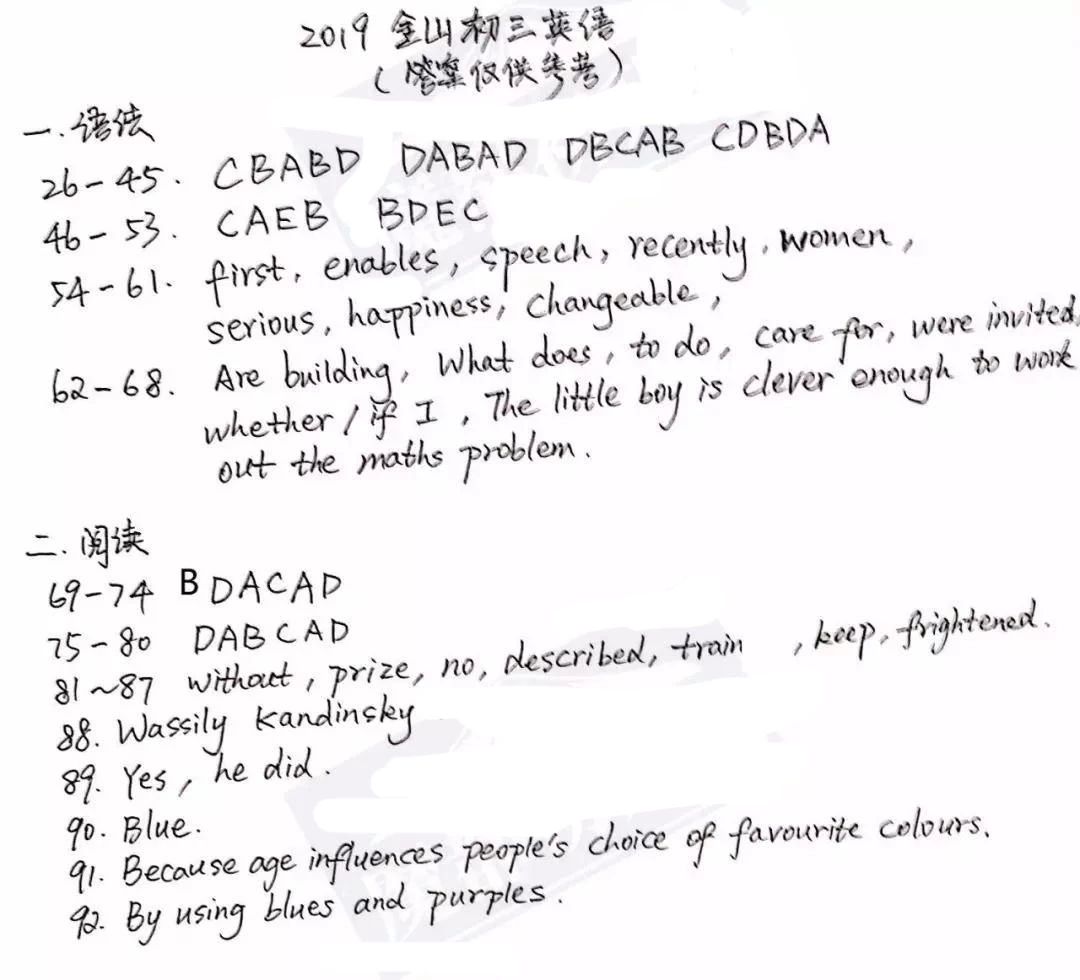 2019 金山初三英语
(答案仅供参考)
一.语法
26-45. CBABD DABAD DBCAB CDBDA
46-53. CAEB BDEC
54-61. first, enables, speech, recently, women,
serious, happiness, changeable,
62-68. Are building, What does, to do, care for, were invited,
whether / if I, The little boy is clever enough to work
out the maths problem.
二.阅读
69-74 BDACAD
75-80 DABCAD
81~87 without, prize, no, described, train , keep, frightened.
88. Wassily Kandinsky
89. Yes, he did.
90. Blue.
91. Because age influences people's choice of favourite colours.
92. By using blues and purples.